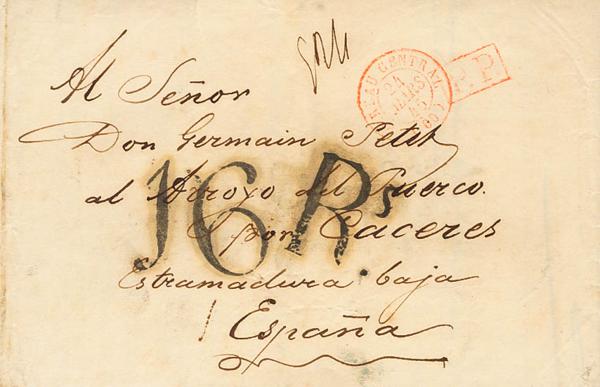 P.P.
BUREAU CENTRAL
24
MARS
Al Señor
Don Germain Petit
al Arroyo del Puerco.
16 Rs.
por Caceres
Estramadura baja
España